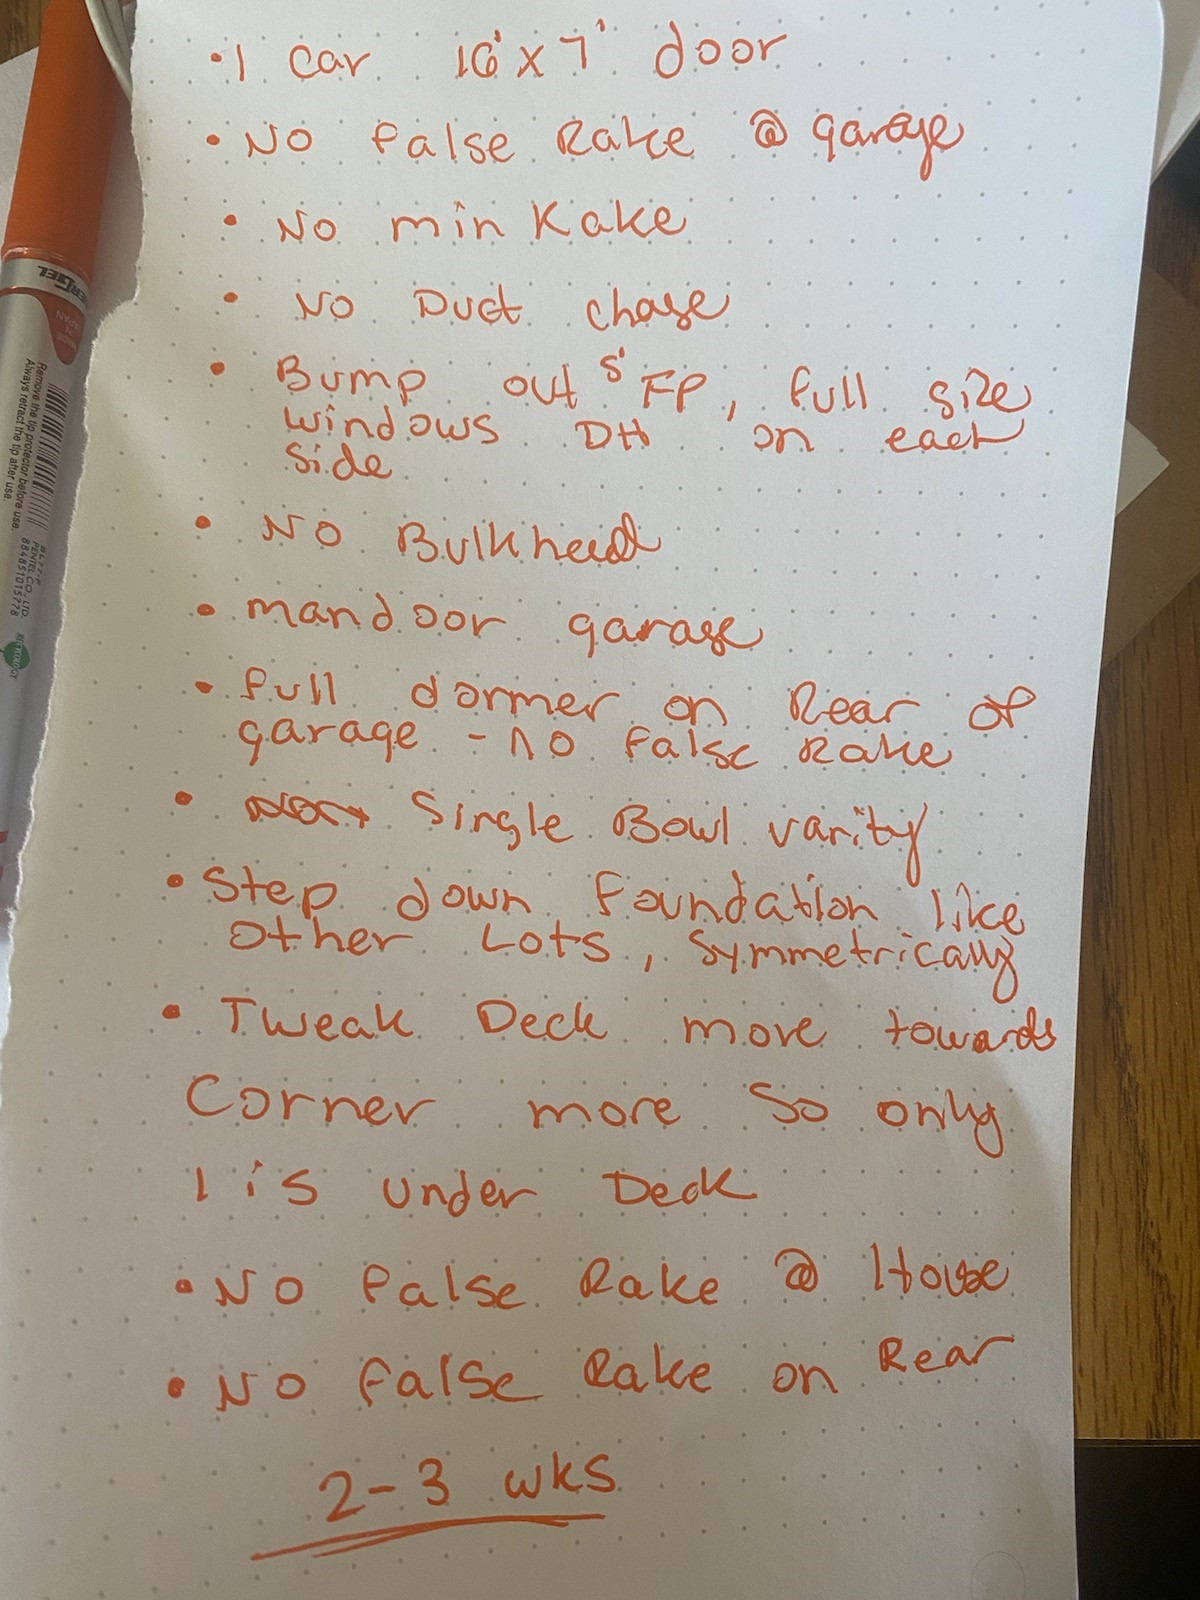 • 1 car 16' x 7' door
• NO false Rake @ garage
• NO min Rake
• NO Duct chase
• Bump out 5' FP, full size
windows DH on each
side
• NO Bulkhead
• mandoor garage
• full dormer on Rear of
garage - no false Rake
• Single Bowl vanity
• Step down foundation like
other Lots, symmetrically
• Tweak Deck more towards
Corner more so only
1 is under Deck
• NO false Rake @ House
• NO false Rake on Rear
2-3 wks
MADE IN JAPAN
Remove the tip protector before use.
Always retract the tip after use.
PENTEL CO., LTD.